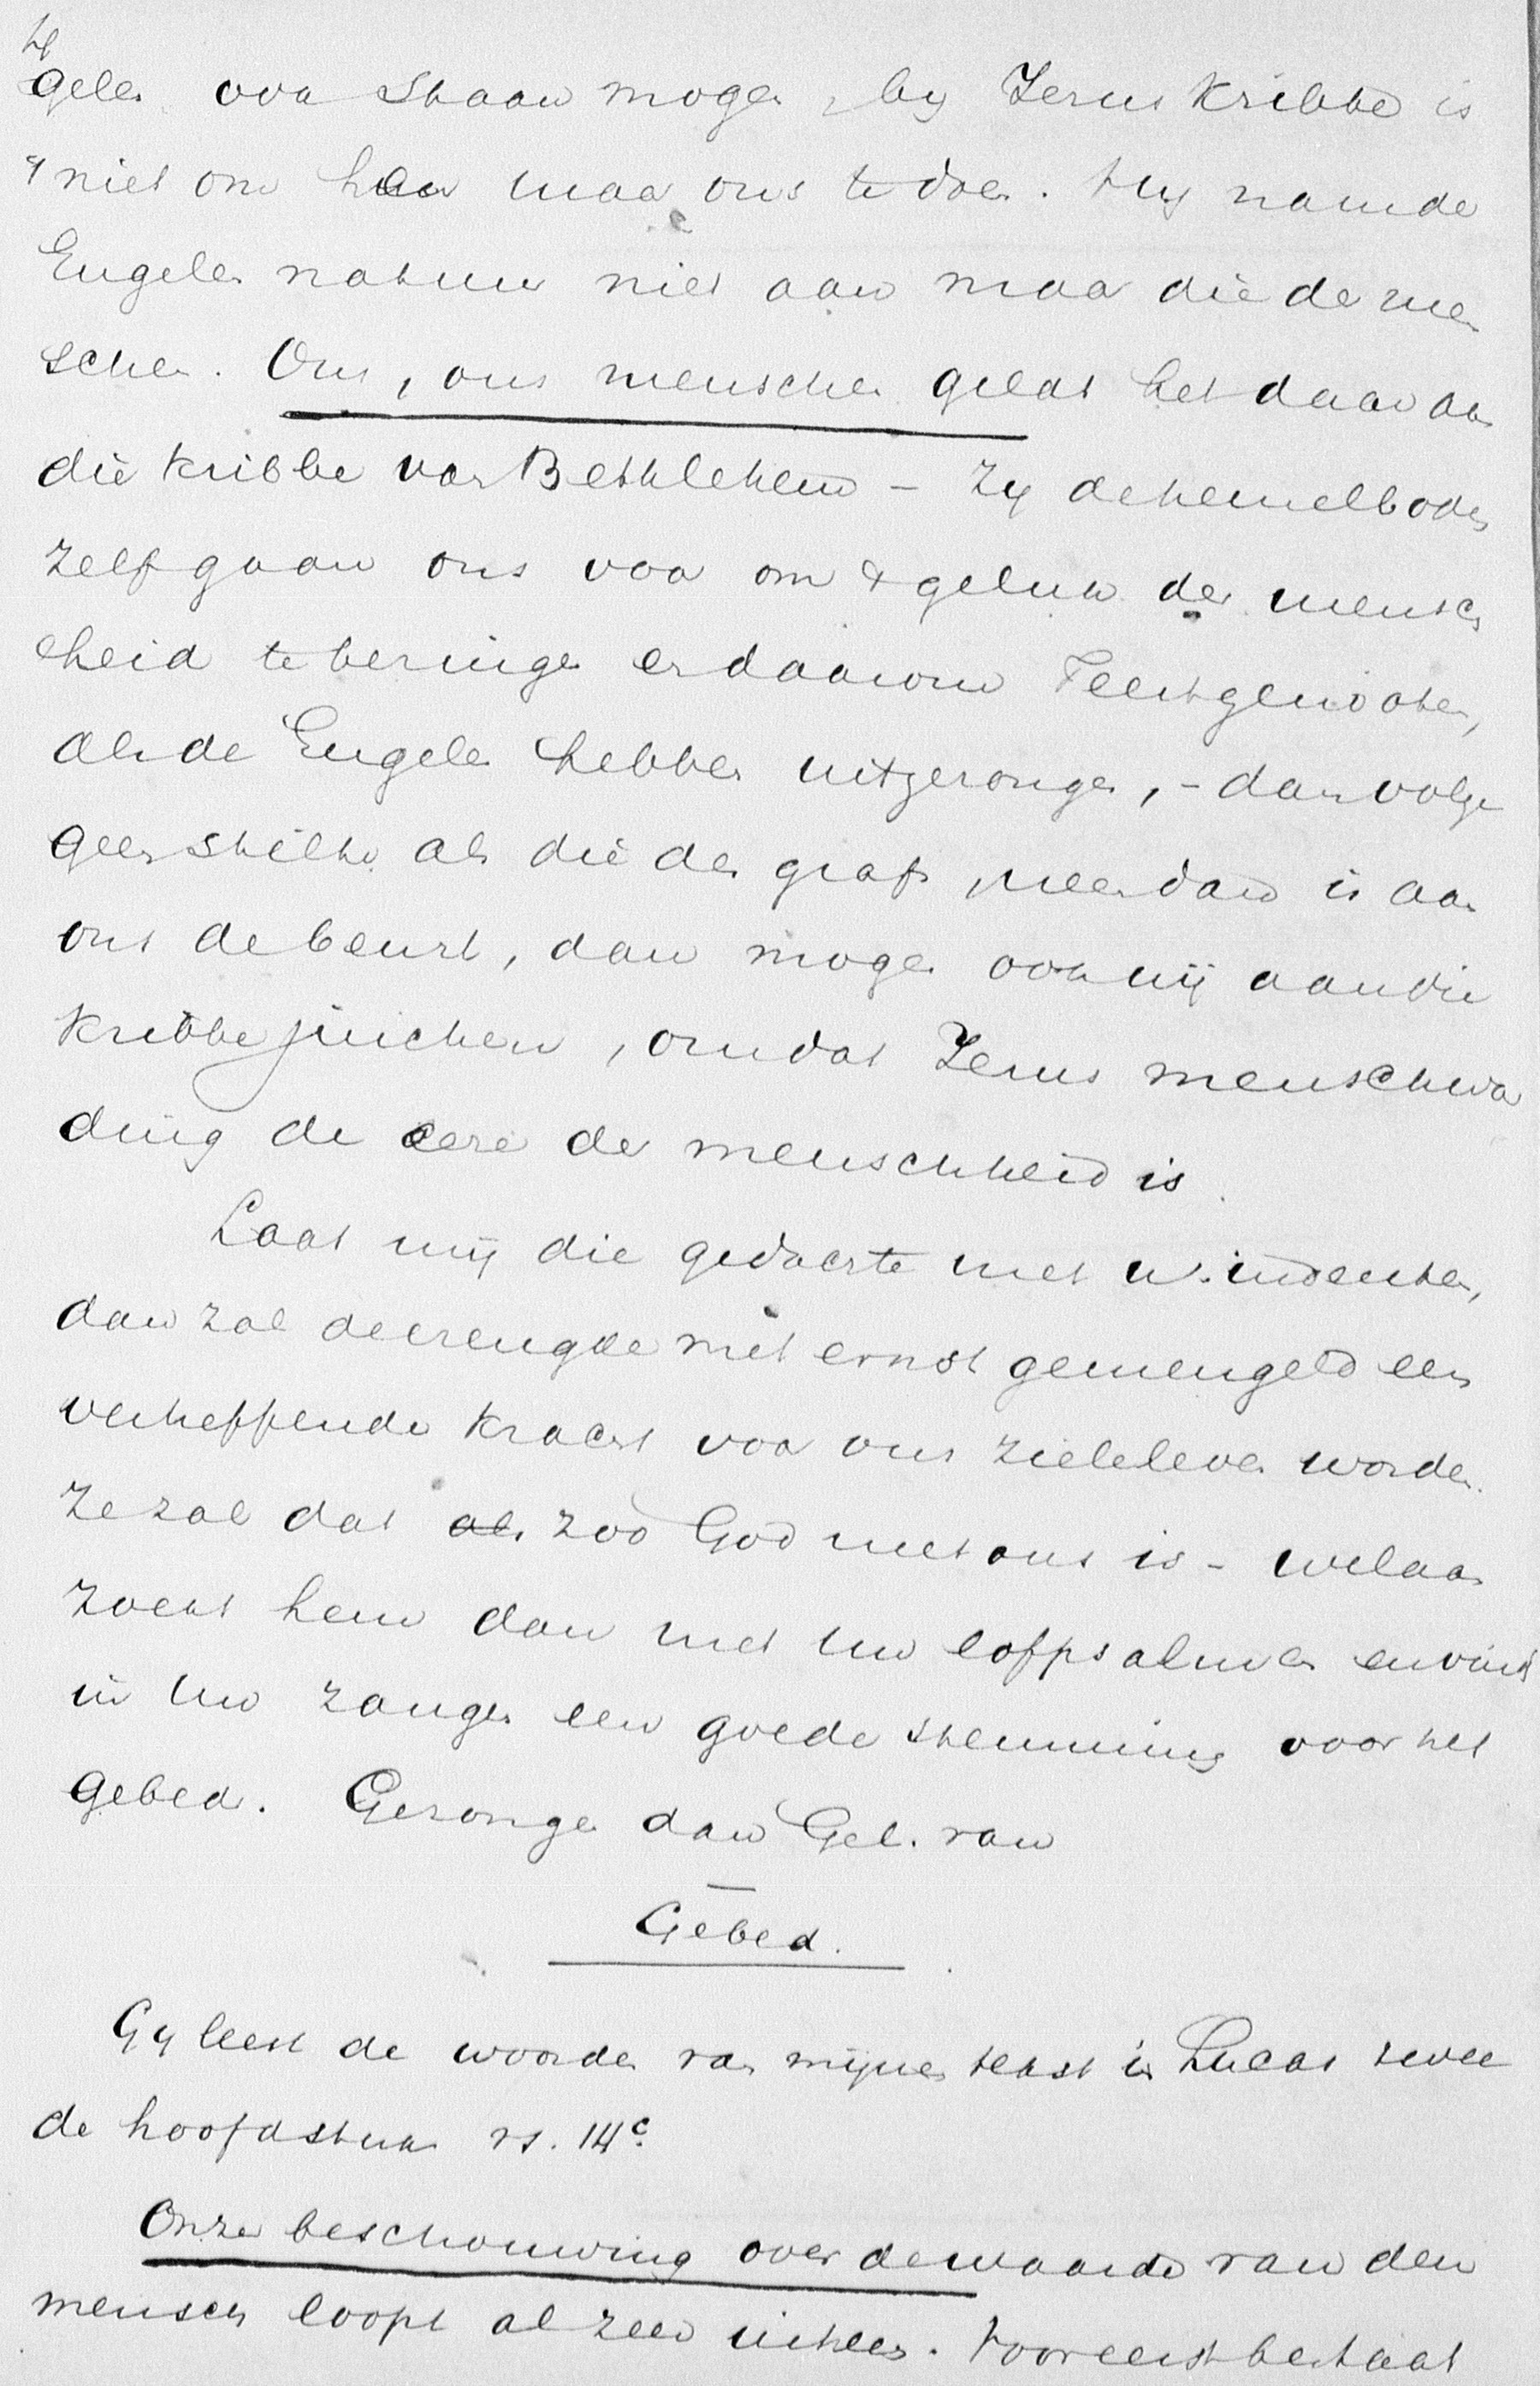 4
gelen ook staan mogen, by Jezus kribbe is
't niet om hen maar ons te doen. Hij nam de
Engelen natuur niet aan maar die der men
schen. Ons, ons menschen geldt het daar aan
die kribbe van Bethlehem – Zij de hemelboden
zelf gaan ons voor om 't geluk der mensch
heid te bezingen en daarom Feestgenooten,
als de Engelen hebben uitgezongen, – dan volge
geen stilte als die des grafs, neen dan is aan
ons de beurt, dan mogen ook wij aan die
kribbe juichen, omdat Jezus menschwor
ding de eere der menschheid is.
Laat mij die gedachte met u indenken,
dan zal de vreugde met ernst gemengeld een
verheffende kracht voor ons zieleleven worden.
Ze zal dat als zoo God met ons is – welaan
zoekt hem dan met uw lofpsalmen en vindt
in uw zangen een goede stemming voor het
gebed. Gezongen dan Gel. van
Gebed.
Gij leest de woorden van mijnen tekst in Lucas twee
de hoofdstuk vs. 14c.
Onze beschouwing over de waarde van den
mensch loopt al zeer uiteen. Vooreerst bestaat